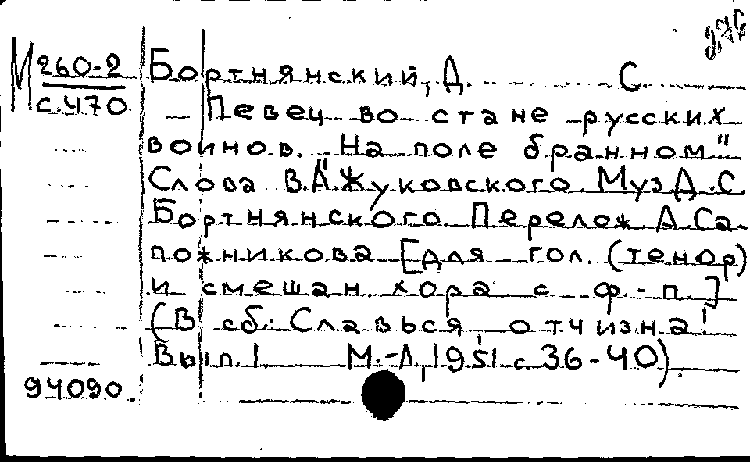 М 260-2 Бортнянский, Д. С.
с.470 Певец во стане русских
воинов. На поле бранном"
Слова В.А.Жуковского. Муз.Д.С.
Бортнянского. Перелож. А.Са-
пожникова [для гол. (тенор)
и смешан хора с ф.-п.]
(В сб.: Славься, отчизна!
Вып.1 М.-Л,1951 с.36-40).
94090.